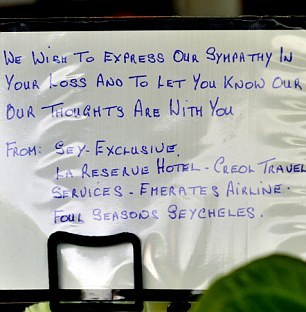 We Wish To Express Our Sympathy In
Your Loss And To Let You Know Our
Our Thoughts Are With You
From: Sey-Exclusive.
La Reserve Hotel - Creol Travel
Services - Emerates Airline.
Four Seasons Seycheles.